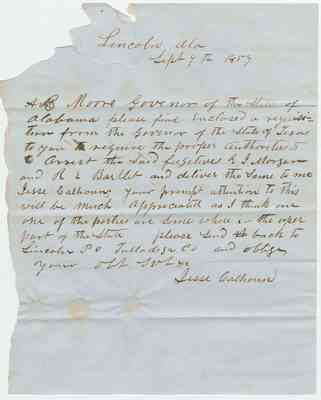 Lincoln, Ala
Sept 9th 1859
A B Moore Govenor of the State of
Alabama please find Enclosed a requisi-
tion from the Govenor of the State of Texas
to you to require the proper Authorities to
Arrest the Said fugetives G J Morgan
and R E Barlet and deliver the Same to me
Jesse Calhoun, Your prompt attention to this
will be Much Appreciated as I think one
one of the parties are Some where in the uper
part of the State please Send back to
Lincoln P O Talladega Co and oblige
Your Obt Svt &c
Jesse Calhoun